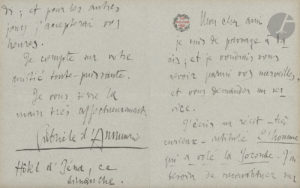 Mon cher ami
je suis de passage à Pa-
ris ; et je voudrais vous
revoir parmi vos merveilles,
et vous demander un ser-
vice.
J'écris un récit - très
curieux - intitulé L'homme
qui a volé la Joconde. J'ai
besoin de
di ; et pour les autres
jours j'accepterai vos
heures.
Je compte sur votre
amitié toute-puissante.
Je vous serre la
main très affectueusement
Gabriele d'Annunzio
Hôtel d'Iéna, ce
dimanche.